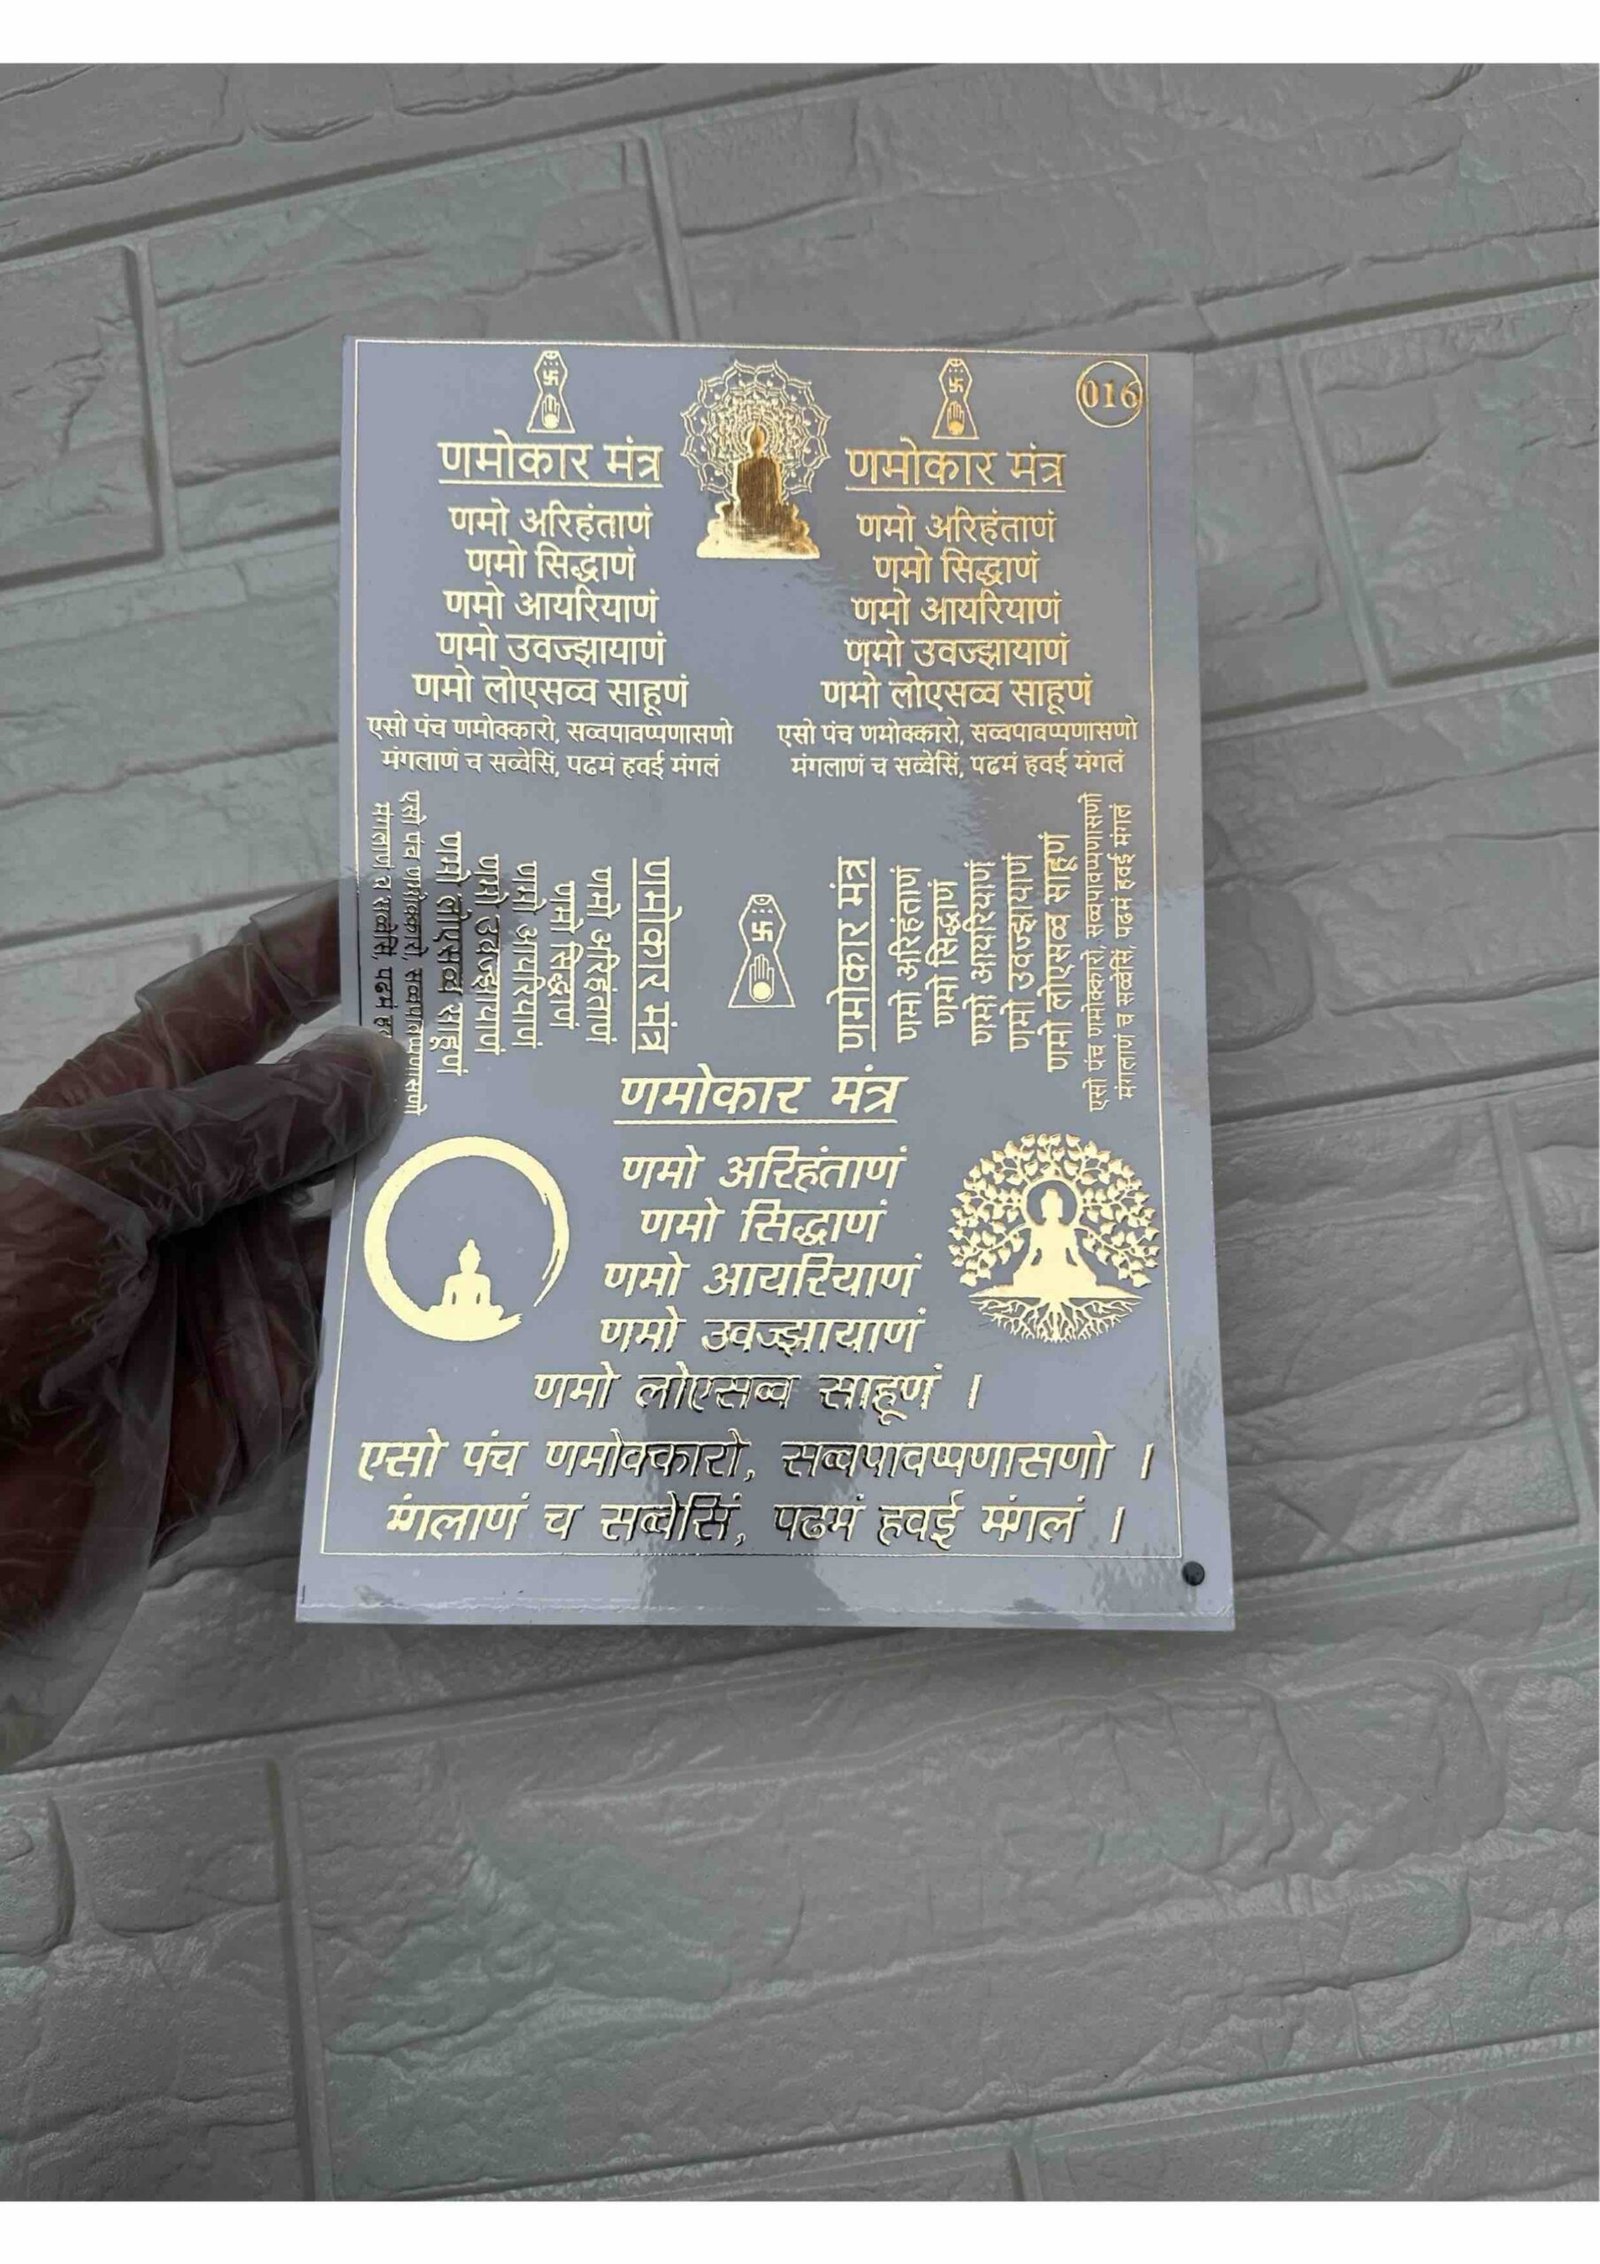 016
णमोकार मंत्र
णमो अरिहंताणं
णमो सिद्धाणं
णमो आयरियाणं
णमो उवज्झायाणं
णमो लोएसव्व साहूणं
एसो पंच णमोक्कारो, सव्वपावप्पणासणो
मंगलाणं च सव्वेसिं, पढमं हवई मंगलं
णमोकार मंत्र
णमो अरिहंताणं
णमो सिद्धाणं
णमो आयरियाणं
णमो उवज्झायाणं
णमो लोएसव्व साहूणं
एसो पंच णमोक्कारो, सव्वपावप्पणासणो
मंगलाणं च सव्वेसिं, पढमं हवई मंगलं
णमोकार मंत्र
णमो अरिहंताणं
णमो सिद्धाणं
णमो आयरियाणं
णमो उवज्झायाणं
णमो लोएसव्व साहूणं
एसो पंच णमोक्कारो, सव्वपावप्पणासणो
मंगलाणं च सव्वेसिं, पढमं
णमोकार मंत्र
णमो अरिहंताणं
णमो सिद्धाणं
णमो आयरियाणं
णमो उवज्झायाणं
णमो लोएसव्व साहूणं
एसो पंच णमोक्कारो, सव्वपावप्पणासणो
मंगलाणं च सव्वेसिं, पढमं हवई मंगलं
णमोकार मंत्र
णमो अरिहंताणं
णमो सिद्धाणं
णमो आयरियाणं
णमो उवज्झायाणं
णमो लोएसव्व साहूणं ।
एसो पंच णमोक्कारो, सव्वपावप्पणासणो ।
मंगलाणं च सव्वेसिं, पढमं हवई मंगलं ।